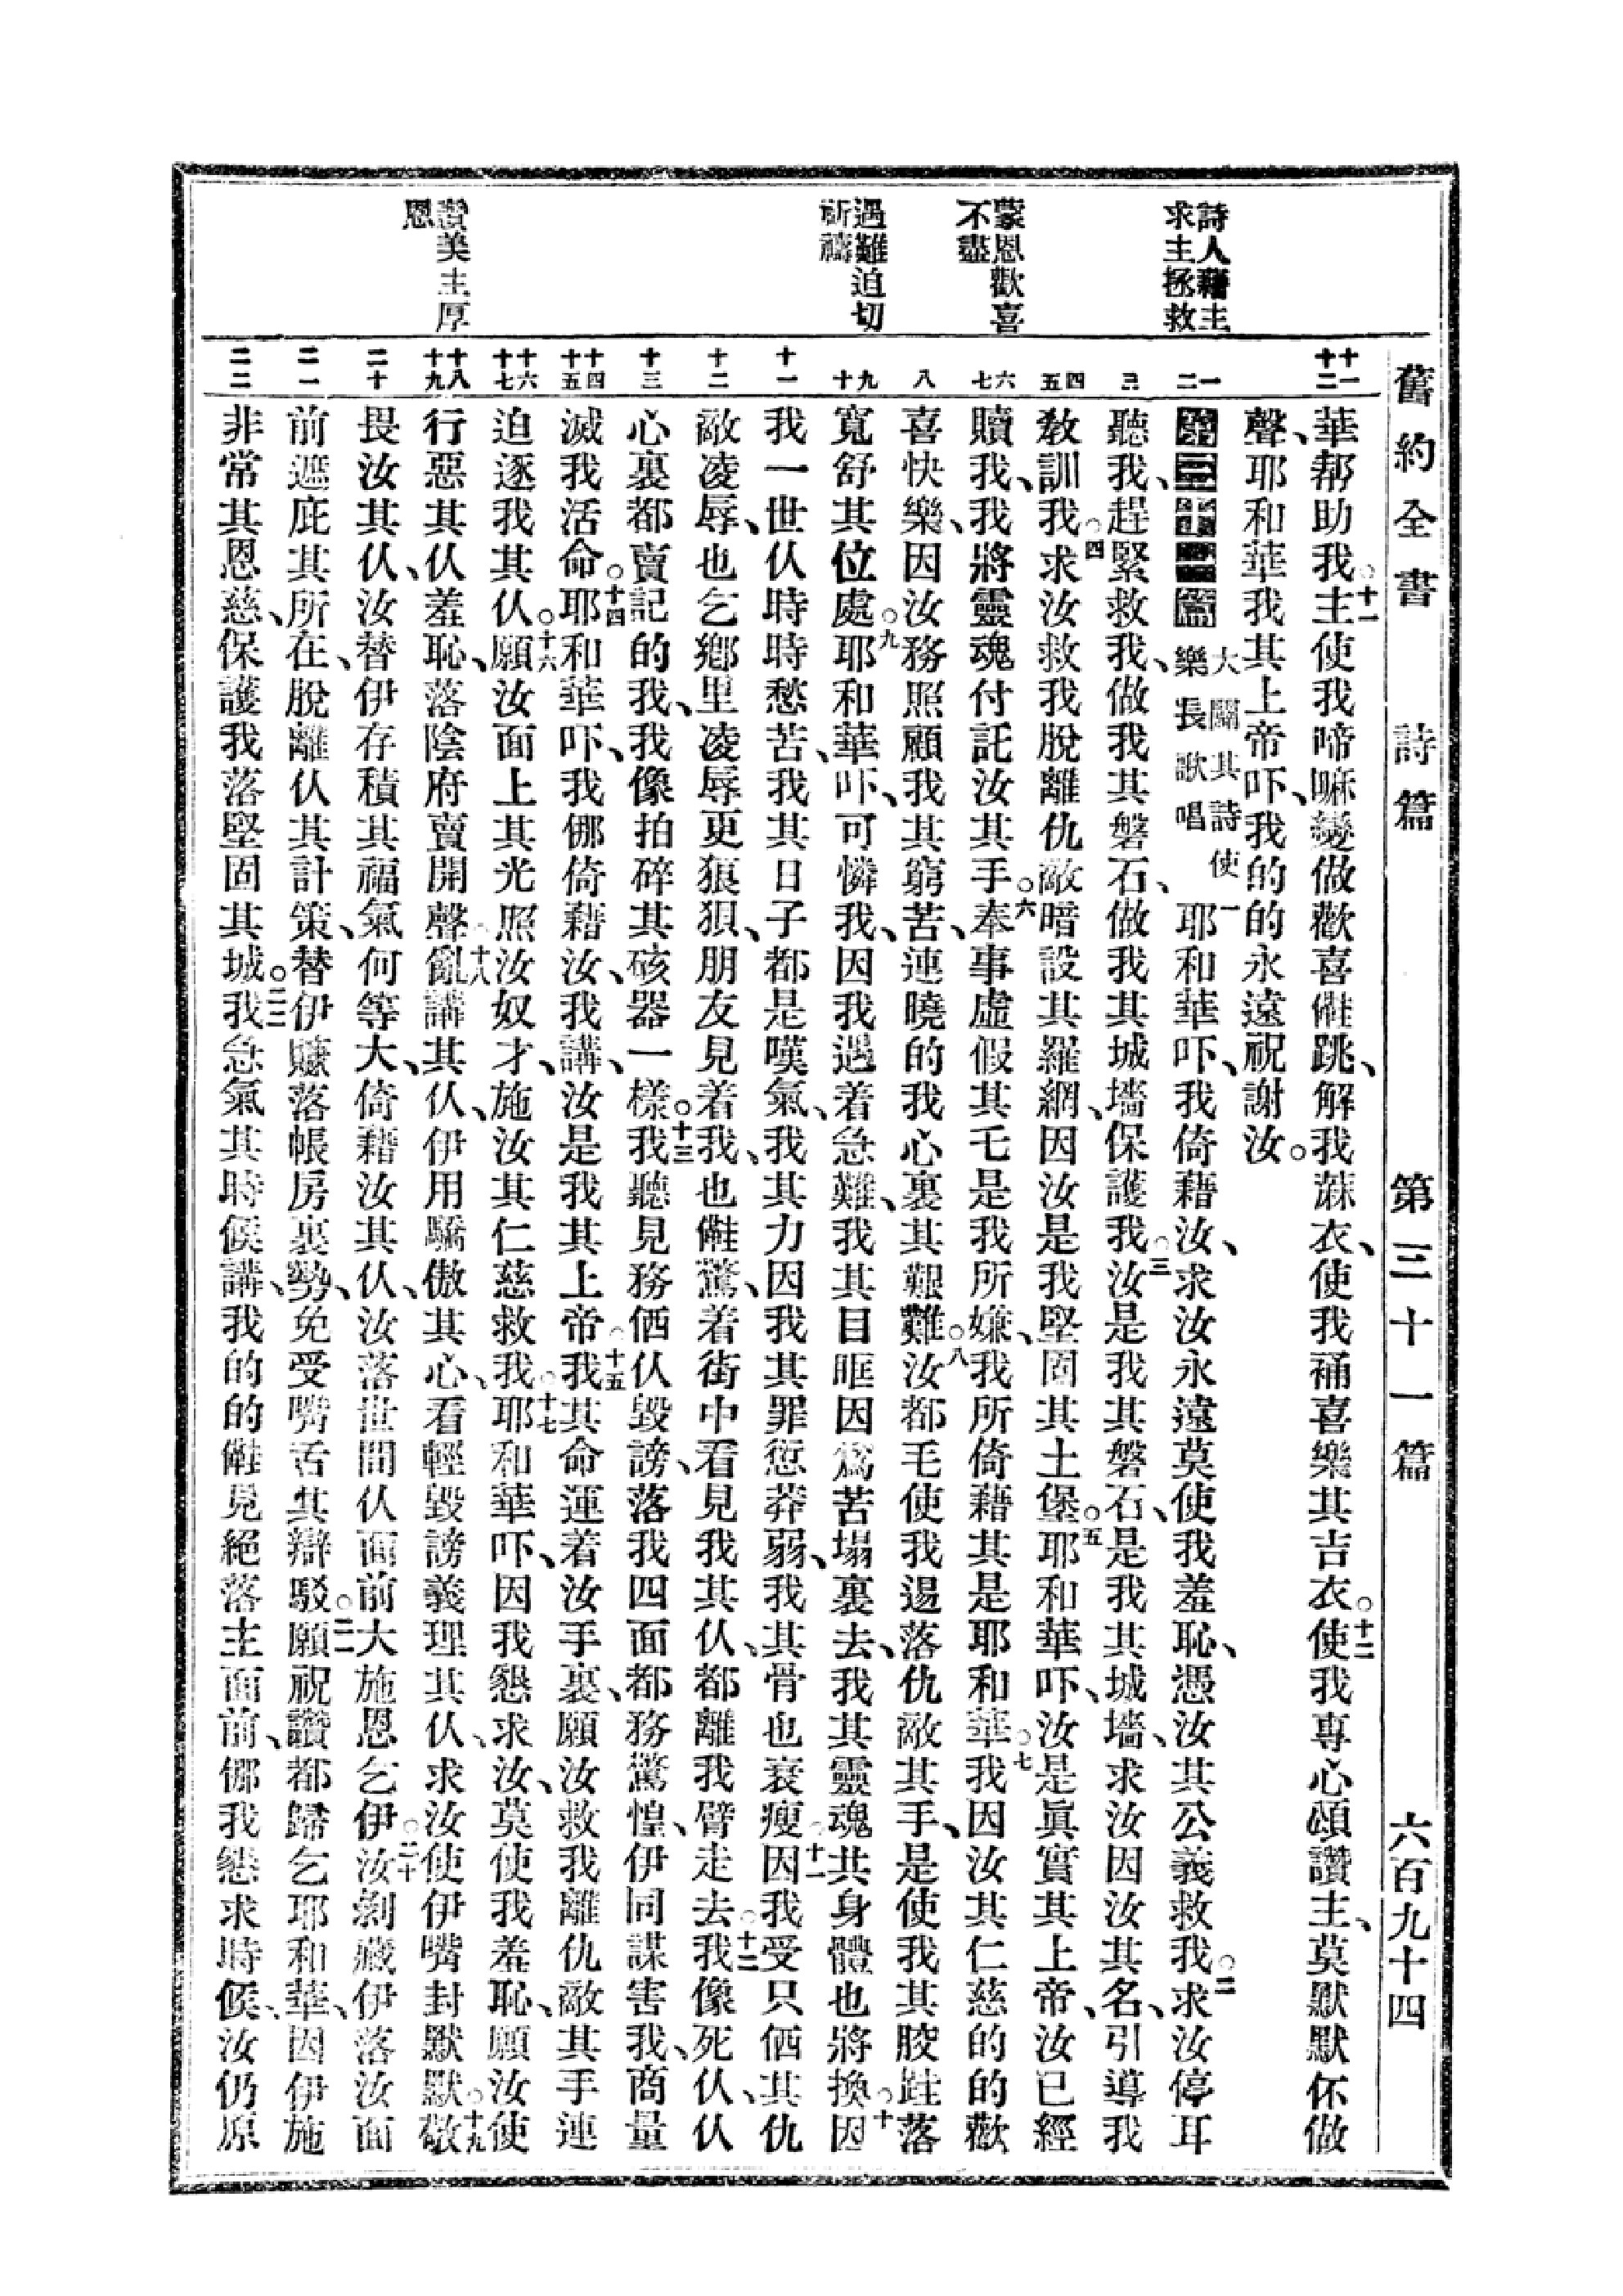 舊約全書　詩篇　第三十一篇　六百九十四
詩人藉主
求主拯救
蒙恩歡喜
不盡
遇難迫切
祈禱
讚美主厚
恩
十一 十二
一 二
三
四 五
六 七
八
九 十
十一
十二
十三
十四 十五
十六 十七
十八 十九
二十
二一
二二
華帮助我。十一主使我啼嘛變做歡喜㒰跳、解我蔴衣、使我補喜樂其吉衣。十二使我專心頌讚主、莫默默伓做
聲、耶和華我其上帝吓、我的的永遠祝謝汝。
第三十一篇 大闢其詩使樂長歌唱 一耶和華吓、我倚藉汝、求汝永遠莫使我羞恥、憑汝其公義救我。二求汝停耳
聽我、趕緊救我、做我其磐石、做我其城墻保護我。三汝是我其磐石、是我其城墻、求汝因汝其名、引導我
教訓我。四求汝救我脫離仇敵暗設其羅網、因汝是我堅固其土堡。五耶和華吓、汝是眞實其上帝、汝已經
贖我、我將靈魂付託汝其手。六奉事虛假其乇是我所嫌、我所倚藉其是耶和華。七我因汝其仁慈的的歡
喜快樂、因汝務照顧我其窮苦、連曉的我心裏其艱難。八汝都毛使我逿落仇敵其手、是使我其骹跬落
寬舒其位處。九耶和華吓、可憐我、因我遇着急難、我其目眶因爲苦塌裏去、我其靈魂共身體也將換。十因
我一世仈時時愁苦、我其日子都是嘆氣、我其力因我其罪愆莽弱、我其骨也衰瘦。十一因我受只侕其仇
敵凌辱、也乞鄉里凌辱更狼狽、朋友見着我、也㒰驚、着街中看見我其仈、都離我臂走去。十二我像死仈、仈
心裏都賣記的我、我像拍碎其硋器一樣。十三我聽見務侕仈毀謗、落我四面都務驚惶、伊同謀害我、商量
滅我活命。十四耶和華吓、我㑚倚藉汝、我講、汝是我其上帝。十五我其命運着汝手裏、願汝救我離仇敵其手連
迫逐我其仈。十六願汝面上其光照汝奴才、施汝其仁慈救我。十七耶和華吓、因我懇求汝、莫使我羞恥、願汝使
行惡其仈羞恥、落陰府賣開聲。十八亂講其仈、伊用驕傲其心、看輕毀謗義理其仈、求汝使伊嘴封默默。十九敬
畏汝其仈、汝替伊存積其福氣何等大、倚藉汝其仈、汝落世間仈面前大施恩乞伊。二十汝剃藏伊落汝面
前遮庇其所在、脫離仈其計策、替伊賺落帳房裏勢、免受嘴舌其辯駁。二一願祝讚都歸乞耶和華、因伊施
非常其恩慈、保護我落堅固其城。二二我急氣其時候講、我的的㒰見絕落主面前、㑚我懇求時候、汝仍原